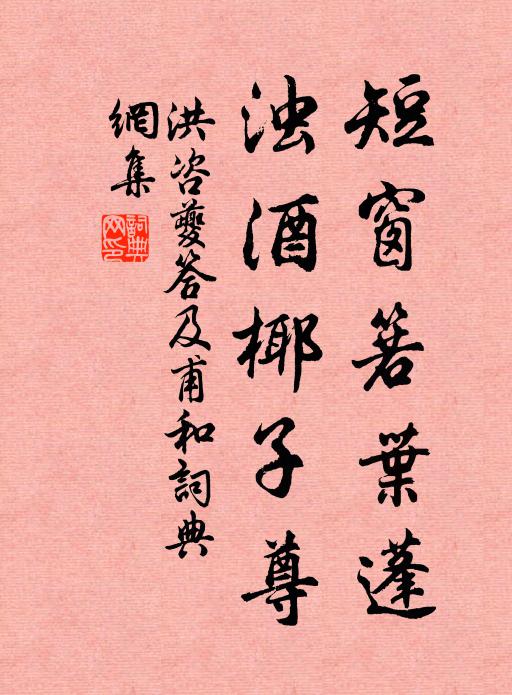 短窗箬葉蓬
浊酒椰子尊
洪咨夔答及甫和詞典
網集
詞典網印